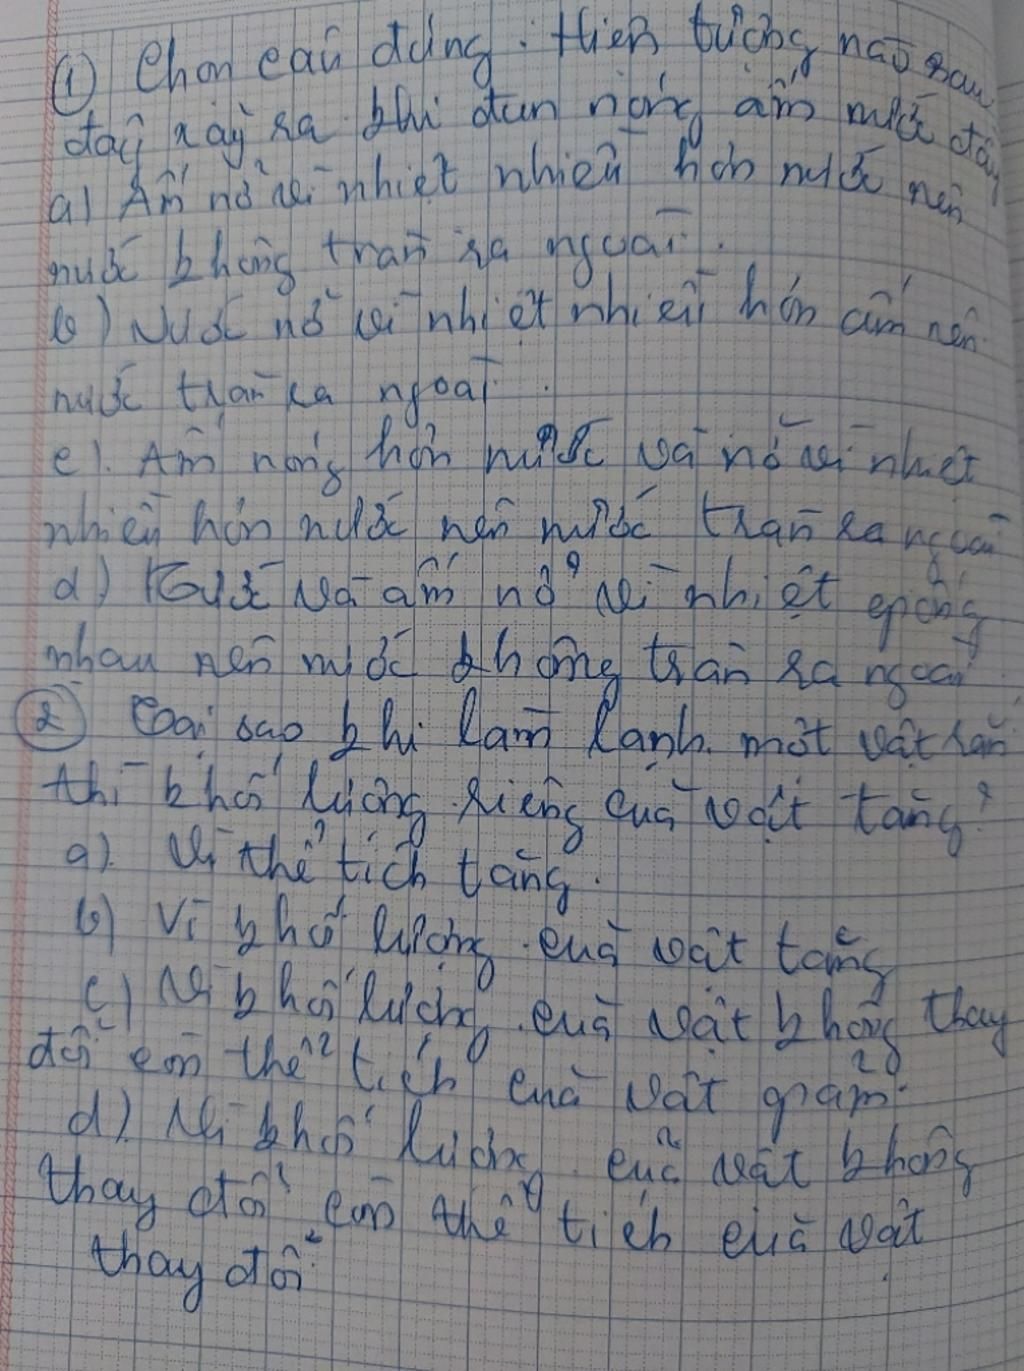 ① Chọn câu đúng. Hiện tượng nào sau
đây xảy ra khi đun nóng ấm nước đầy
a) Ấm nở vì nhiệt nhiều hơn nước nên
nước không tràn ra ngoài.
b) Nước nở vì nhiệt nhiều hơn ấm nên
nước tràn ra ngoài.
c). Ấm nóng hơn nước và nở vì nhiệt
nhiều hơn nước nên nước tràn ra ngoài
d) Nước và ấm nở vì nhiệt giống
nhau nên nước không tràn ra ngoài
② Tại sao khi làm lạnh một vật rắn
thì khối lượng riêng của vật tăng?
a). Vì thể tích tăng.
b) Vì khối lượng của vật tăng
c) Vì khối lượng của vật không thay
đổi còn thể tích của vật giảm.
d). Vì khối lượng của vật không
thay đổi còn thể tích của vật
thay đổi.